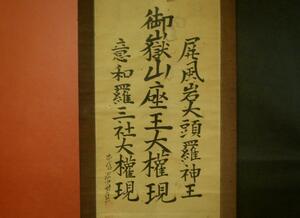 屏風岩大頭羅神王
御嶽山座王大權現
意和羅三社大權現